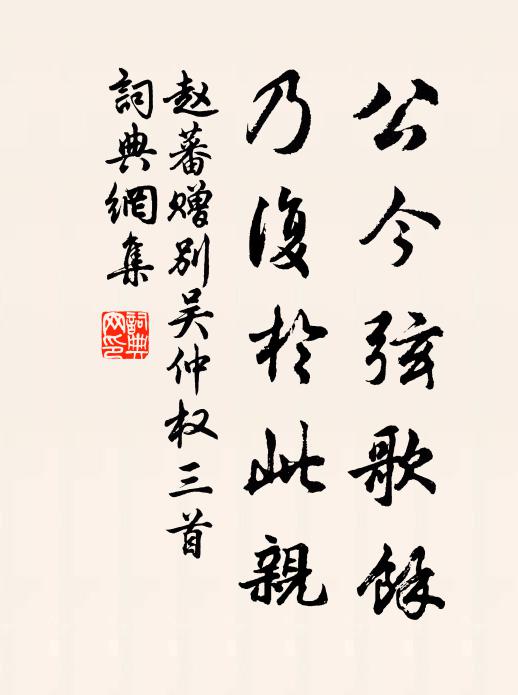 公今弦歌餘
乃復於此親
赵蕃赠别吴仲权三首
詞典網集
詞典網印